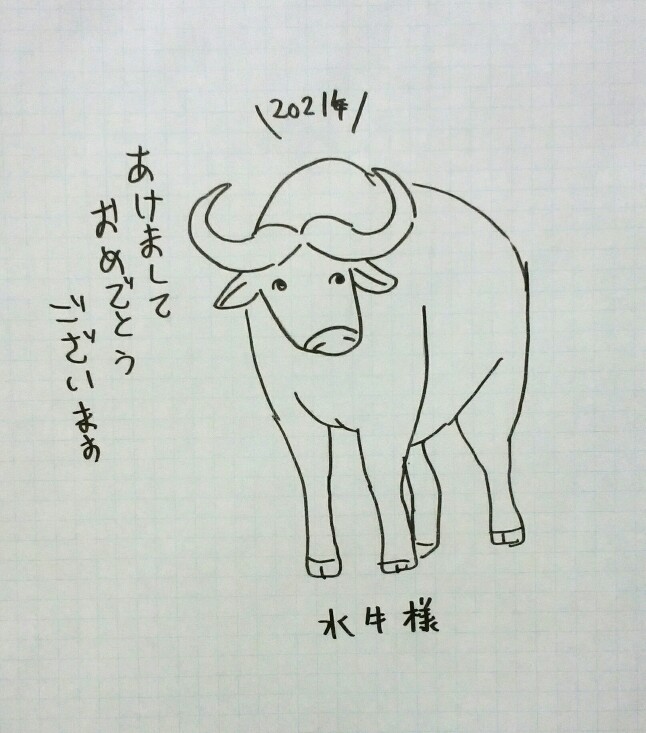 2021年
あけまして
おめでとう
ございまぁ
水牛様